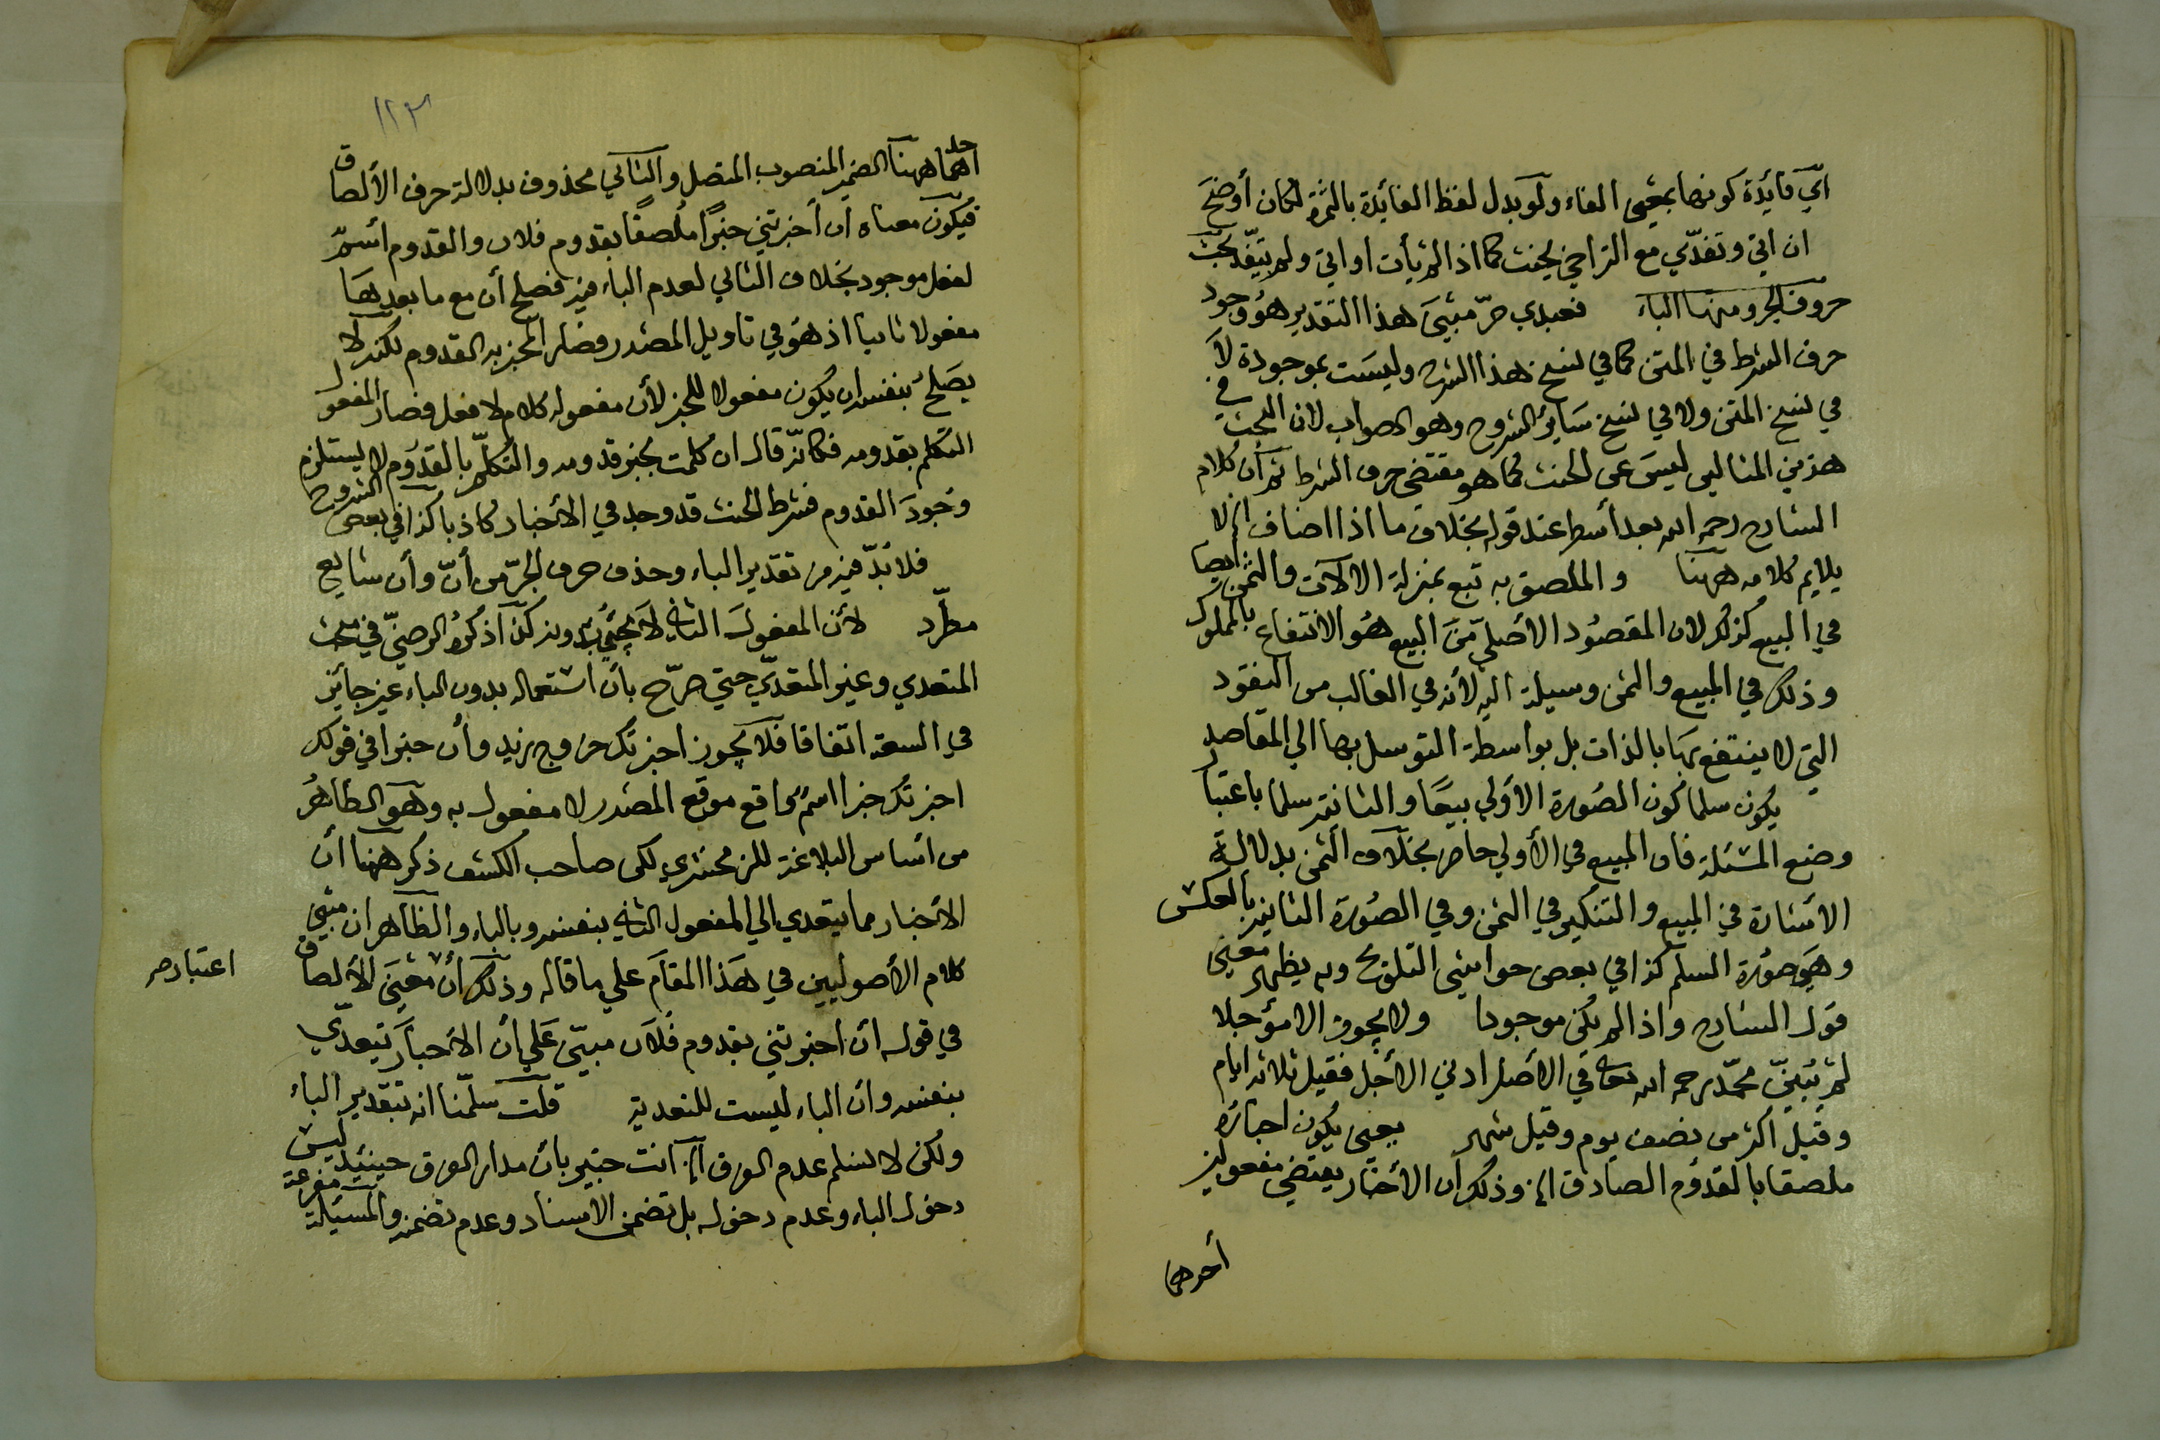 اي فائدة كونها بمعنى الفاء ولو بدل لفظ الفائدة بالثمرة لكان أوضح
ان اتى وتغدي مع التراخي يحنث كما اذا لم يأت او اتى ولم يتغد يحنث
حروف الجر ومنها الباء فعبدي حر مبني هذا التقدير هو وجود
حرف الشرط في المتن كما في نسخ هذا الشرح وليست بموجودة لا
في نسخ المتن ولا في نسخ سائر الشروح وهو الصواب لان البحث في
هذين المثالين ليس عن الحنث كما هو مقتضى حرف الشرط ثم ان كلام
الشارح رحمه الله بعد أسطر عند قوله بخلاف ما اذا اضاف الخ لا
يلايم كلامه ههنا والملصق به تبع بمنزلة الالات والثمن ايضا
في البيع كذلك لان المقصود الأصلي من البيع هو الانتفاع بالمملوك
وذلك في المبيع والثمن وسيلة اليه لأنه في الغالب من النقود
التي لا ينتفع بها بالذات بل بواسطة التوسل بها الي المقاصد
يكون سلما كون الصورة الأولي بيعا والثانية سلما باعتبار
وضع المسئلة فان المبيع في الأولي حاضر بخلاف الثمن بدلالة
الاشارة في المبيع والتنكير في الثمن وفي الصورة الثانية بالعكس
وهي صورة السلم كذا في بعض حواشي التلويح وبه يظهر معنى
قول الشارح واذا لم يكن موجودا ولا يجوز الا مؤجلا
لم يبين محمد رحمه الله تعالى في الأصل ادني الأجل فقيل ثلاثة ايام
وقيل اكثر من نصف يوم وقيل شهر يعني يكون اخباره
ملصقا بالقدوم الصادق الخ وذلك أن الأخبار يقتضي مفعولين
أحدهما
١٢٣
احدهما ههنا الضمير المنصوب المتصل والثاني محذوف بدلالة حرف الألصاق
فيكون معناه ان أخبرتني خبرا ملصقا بقدوم فلان والقدوم أسم
لفعل موجود بخلاف الثاني لعدم الباء فيه فصلح أن مع ما بعدها
مفعولا ثانيا اذ هو في تاويل المصدر وصار المخبر به القدوم لكنه لا
يصلح بنفسه ان يكون مفعولا للخبر لأن مفعوله كلام لا فعل فصار المفعول
التكلم بقدومه فكانه قال ان كلمت بخبر قدومه والتكلم بالقدوم لا يستلزم
وجود القدوم فشرط الحنث قد وجد في الأخبار كاذبا كذا في بعض الشروح
فلا بد فيه من تقدير الباء وحذف حرف الجر من أن وأن شايع
مطرد لأن المفعول الثاني لا يجئ بدونه كذا ذكره الرضي في بحث
المتعدي وغير المتعدي حتي صرح بأن استعماله بدون الباء غير جائز
في السعة اتفاقا فلا يجوز اخبرتك خروج زيد وأن خبرا في قولك
اخبرتك خبرا اسم واقع موقع المصدر لا مفعول به وهو الظاهر
من اساس البلاغة للزمخشري لكن صاحب الكشف ذكر ههنا أن
الأخبار مما يتعدي الي المفعول الثاني بنفسه وبالباء والظاهر ان مبنى
كلام الأصوليين في هذا المقام علي ما قاله وذلك أن معنى الألصاق
اعتبارهم
في قوله ان اخبرتني بقدوم فلان مبني علي أن الأخبار يتعدي
بنفسه وأن الباء ليست للتعدية قلت سلمنا انه بتقدير الباء
ولكن لا نسلم عدم الفرق الخ انت خبير بان مدار الفرق حينئذ ليس
دخول الباء وعدم دخوله بل تضمن الاسناد وعدم تضمنه والمسئلة مفرعة